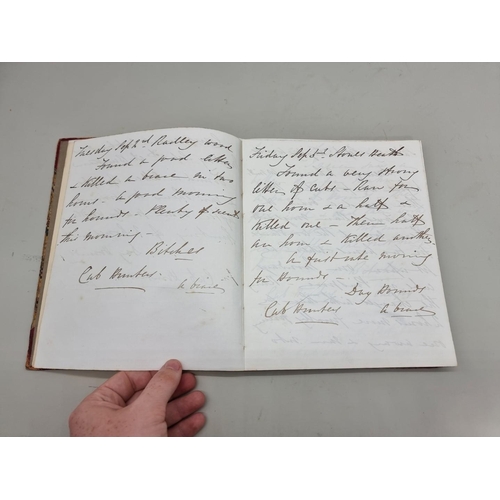 Tuesday Sep 2nd Radley wood
Found a good litter
& killed a brace in two
hours - A good morning
for hounds - Plenty of scent
this morning -
Bitches
Cub Hunters a brace
Friday Sep 5th Stones Heath
Found a very strong
litter of cubs - Ran for
one hour & a half &
killed one - Then half
an hour & killed another.
A first rate morning
for Hounds -
Dog Hounds
Cub Hunters a brace